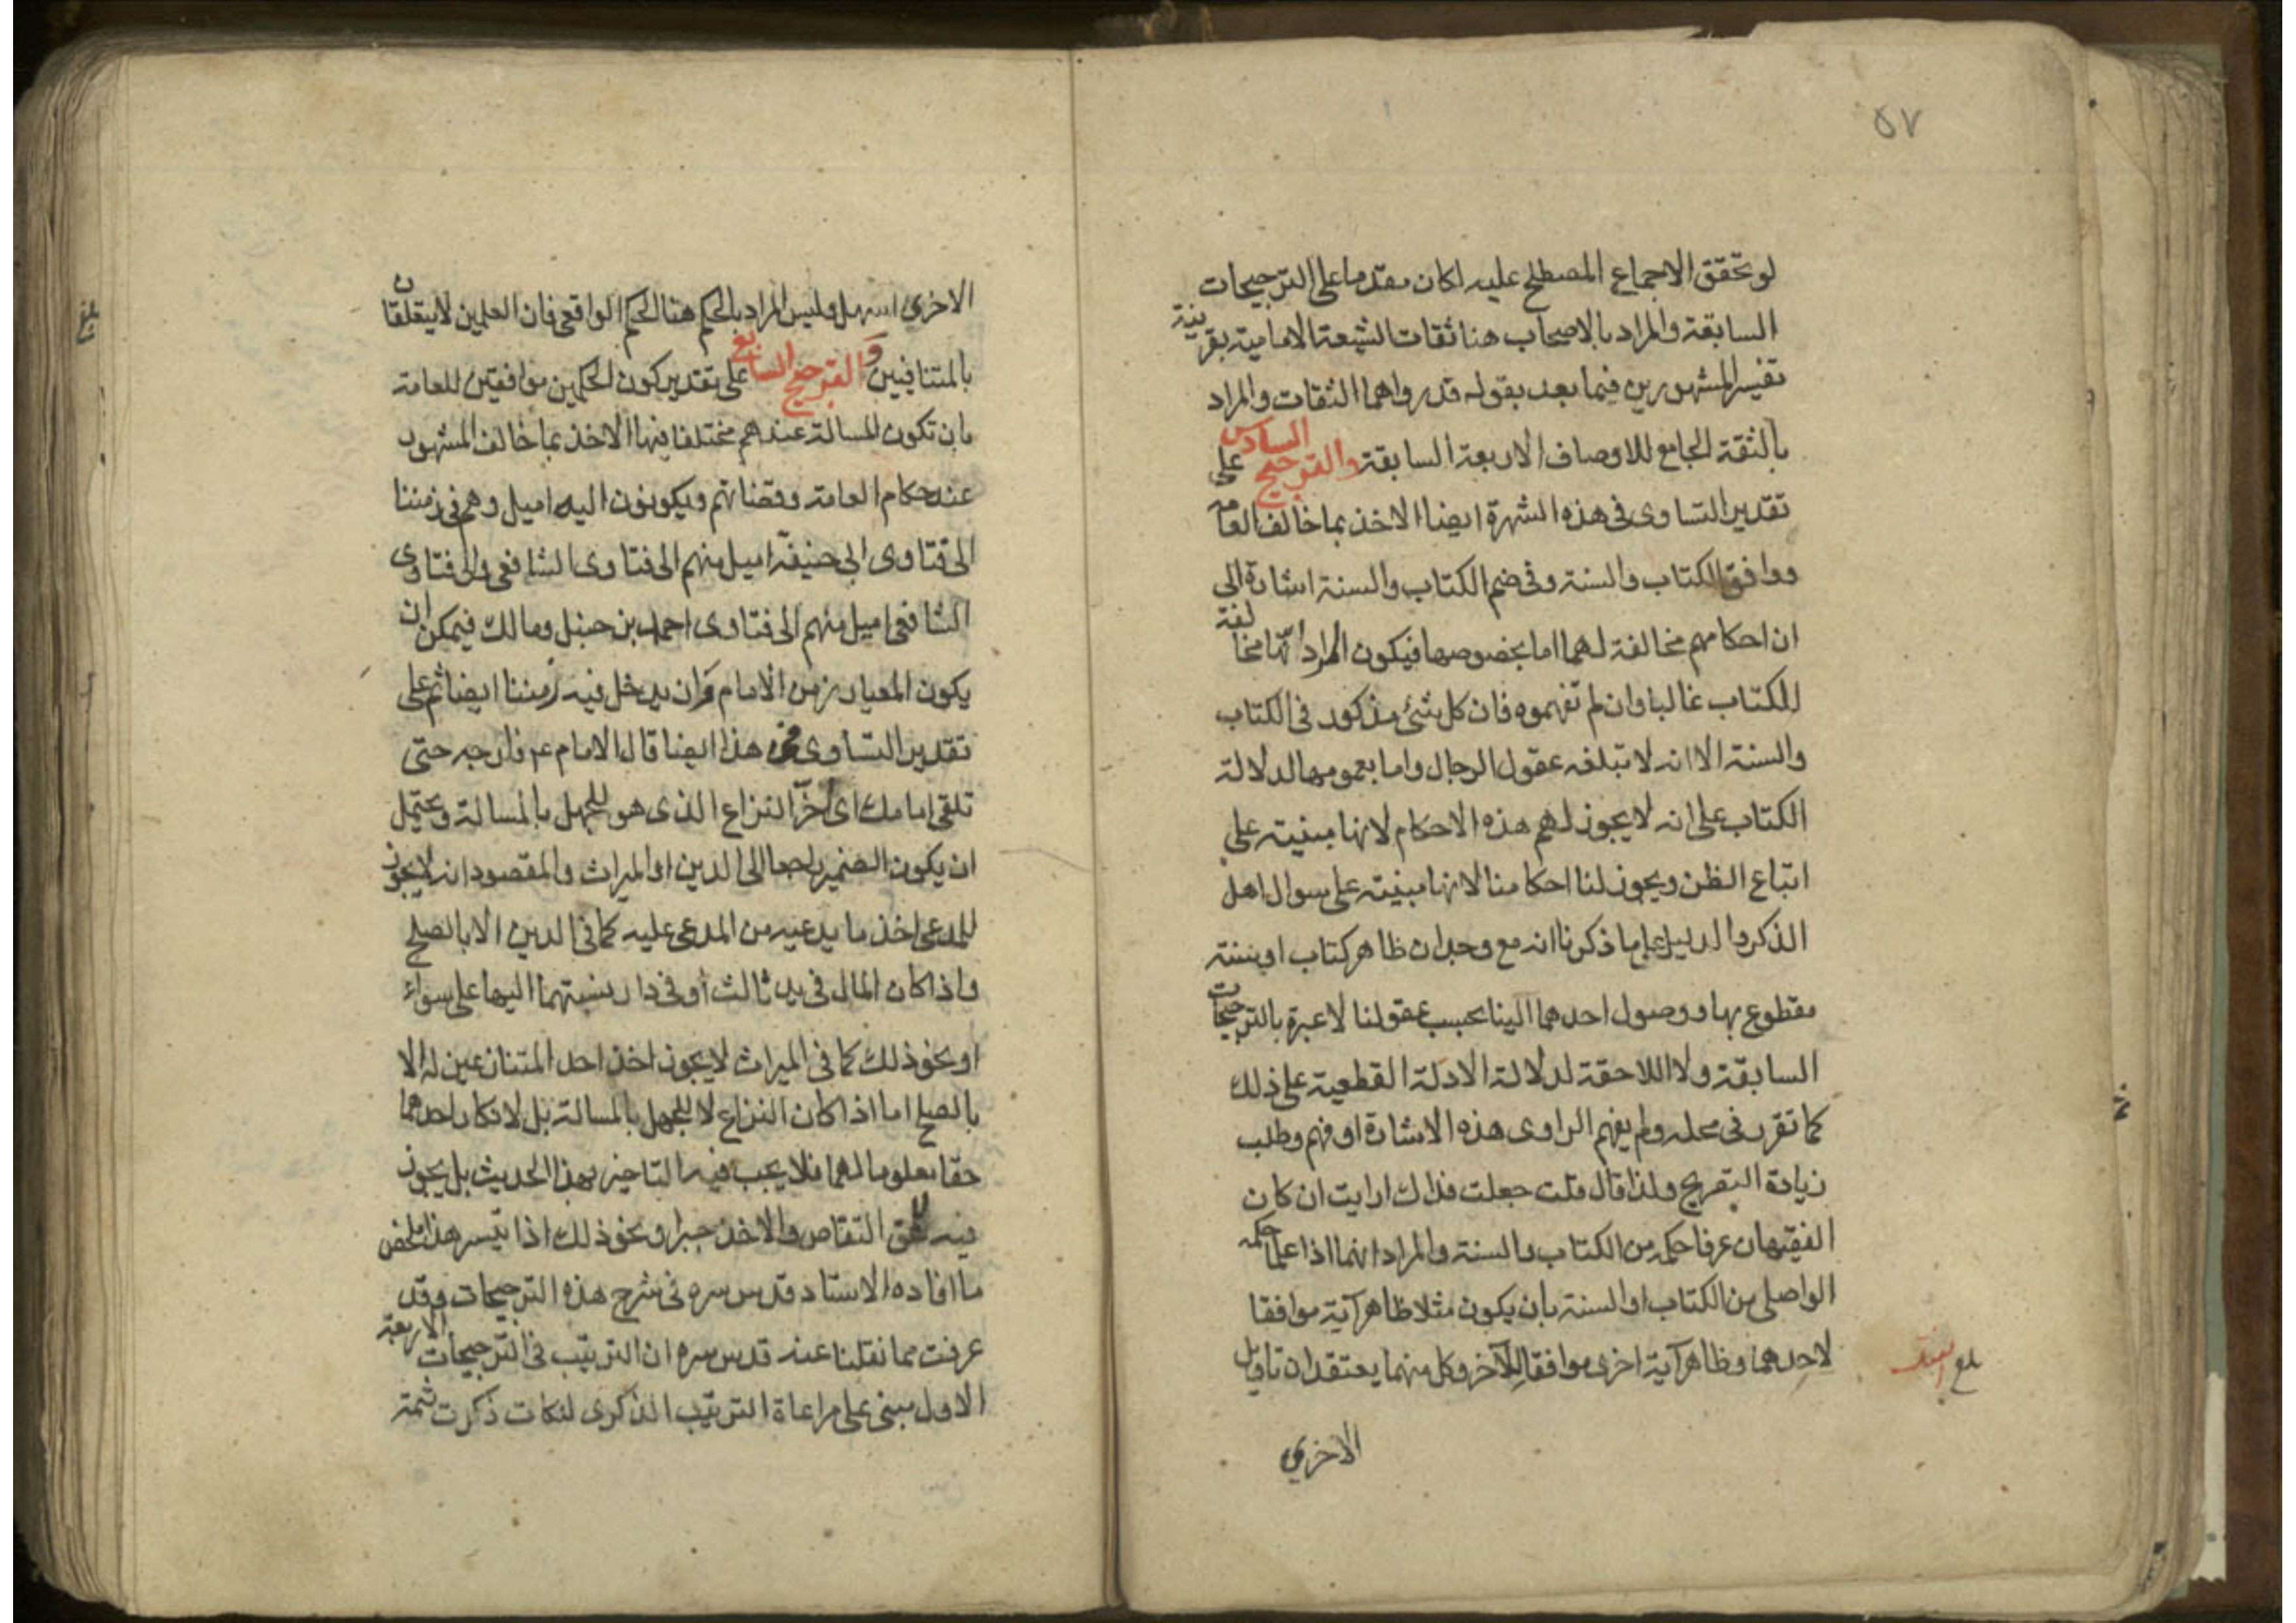 ٥٧
لو تحقق الاجماع المصطلح عليه لكان مقدما على الترجيحات
السابقة والمراد بالاصحاب هنا ثقات الشيعة الامامية بقرينة
تفسير المشهورين فيما بعد بقوله قد رواهما الثقات والمراد
بالثقة الجامع للاوصاف الاربعة السابقة والترجيح السادس على
تقدير التساوى فى هذه الشهرة ايضا الاخذ بما خالف العامة
ووافق الكتاب والسنة وفى ضم الكتاب والسنة اشارة الى
ان احكامهم مخالفة لهما اما بخصوصها فيكون المراد انها مخالفة
للكتاب غالبا وان لم تفهموه فان كل شئ مذكور فى الكتاب
والسنة الا انه لا تبلغه عقول الرجال واما بعمومها لدلالة
الكتاب على انه لا يجوز لهم هذه الاحكام لانها مبنية على
اتباع الظن ويجوز لنا احكامنا لانها مبنية على سوال اهل
الذكر والدليل على ما ذكرنا انه مع وجدان ظاهر كتاب او سنة
مقطوع بها ووصول احدهما الينا بحسب عقولنا لا عبرة بالترجيحات
السابقة ولا اللاحقة لدلالة الادلة القطعية على ذلك
كما تقرر فى محله ولم يفهم الراوى هذه الاشارة او فهم وطلب
زيادة التصريح ولذا قال قلت جعلت فداك ارايت ان كان
الفقيهان عرفا حكمه من الكتاب والسنة والمراد انهما اذا علما حكمه
الواصلى من الكتاب او السنة بان يكون مثلا ظاهر آية موافقا
لاحدهما وظاهر آية اخرى موافقا للآخر وكل منهما يعتقد ان تاويل
بلغ
الاخرى
الاخرى اسهل وليس المراد بالحكم هنا الحكم الواقعى فان العلمين لا يتعلقان
بالمتنافيين والترجيح السابع على تقدير كون الحكمين موافقين للعامة
بان تكون المسالة عندهم مختلفا فيها الاخذ بما خالف المشهور
عند حكام العامة وقضاتهم ويكونون اليه اميل وهم فى زمننا
الى فتاوى ابى حنيفة اميل منهم الى فتاوى الشافعى والى فتاوى
الشافعى اميل منهم الى فتاوى احمد بن حنبل ومالك فيمكن ان
يكون المعيار زمن الامام وان يدخل فيه زمننا ايضا ثم على
تقدير التساوى فى هذا ايضا قال الامام ع فارجه حتى
تلقى امامك اى اخر النزاع الذى هو للجهل بالمسالة ويحتمل
ان يكون الضمير راجعا الى الدين او الميراث والمقصود انه لا يجوز
للمدعى اخذ ما يدعيه من المدعى عليه كما فى الدين الا بالصلح
واذا كان المال فى يد ثالث أو فى دار نسبتهما اليها على سواء
او نحو ذلك كما فى الميراث لا يجوز اخذ احد المتنازعين له الا
بالصلح اما اذا كان النزاع لا للجهل بالمسالة بل لانكار احدهما
حقا معلوما لهما فلا يجب فيه التاخير بهذا الحديث بل يجوز
فيه للمحق التقاص والاخذ جبرا ونحو ذلك اذا تيسر هذا ملخص
ما افاده الاستاد قدس سره فى شرح هذه الترجيحات وقد
عرفت مما نقلنا عنه قدس سره ان الترتيب فى الترجيحات الاربعة
الاول مبنى على مراعاة الترتيب الذكرى لنكات ذكرت ثمة